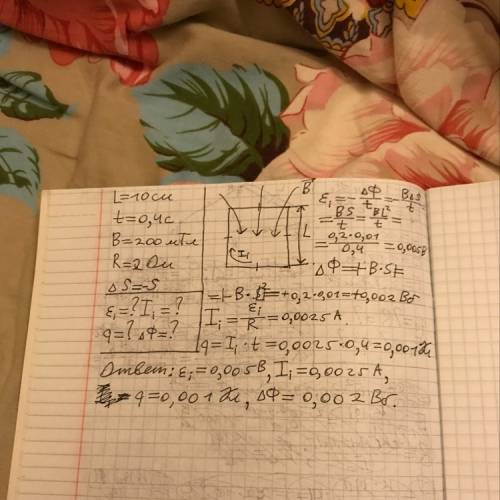 L=10см
t=0,4с
B=200мТл
R=2Ом
ΔS=-S
εi=? Ii=?
q=? ΔΦ=?
B
L
Ii
εi=-ΔΦ/t=-BΔS/t=
=BS/t=BL²/t=
=0,2·0,01/0,4=0,005В
ΔΦ=|-B·S|=
=|-B·L²|=|-0,2·0,01|=0,002Вб
Ii=εi/R=0,0025А.
q=Ii·t=0,0025·0,4=0,001Кл
Ответ: εi=0,005В, Ii=0,0025А,
q=0,001Кл, ΔΦ=0,002Вб.